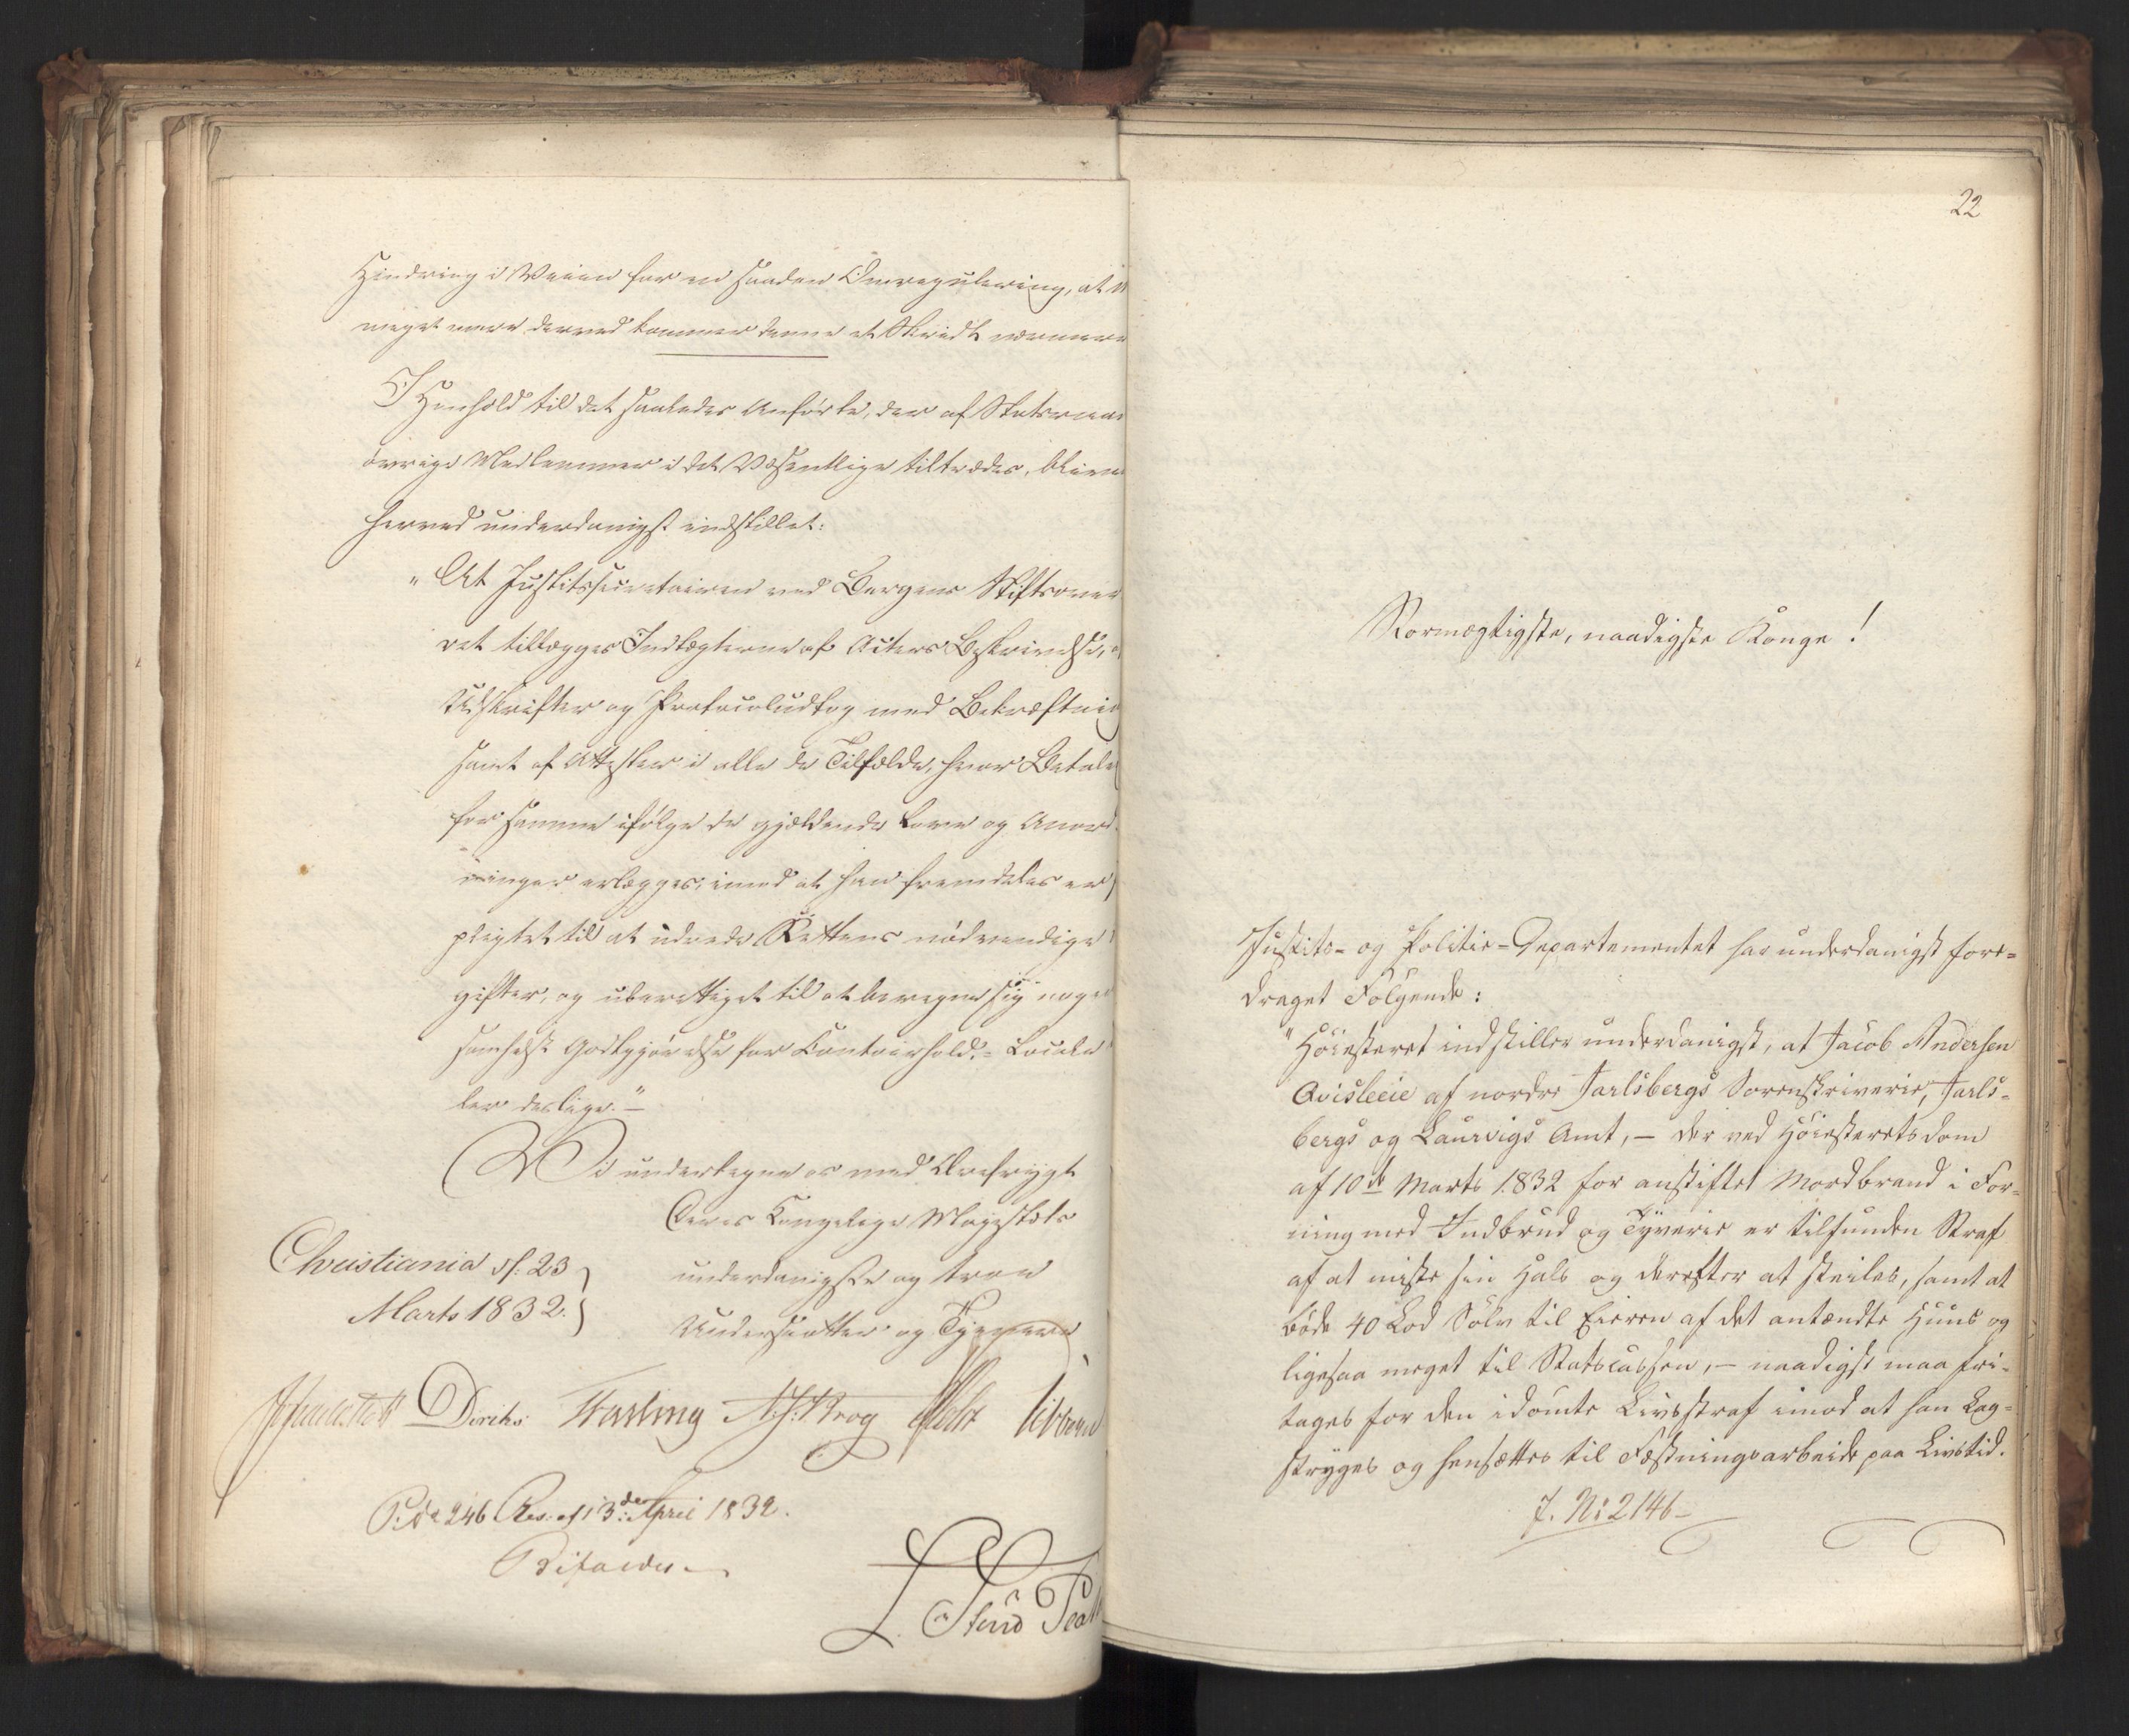 Hindring i Veien for en saadan Omregulering, at
meget mere derved kommer denne et Skridt nærmere
I Henhold til det saaledes Anførte, der af Statsraa
øvrige Medlemmer i det Væsentlige tiltrædes, bliver
herved underdanigst indstillet:
"At Justitssecretairen ved Bergens Stiftsover
ret tillægges Indtægterne af Acters Beskrivelse,
Udskrifter og Protocoludtog med Bekræftning
samt af Attester i alle de Tilfælde, hvor Betaling
for samme ifølge de gjældende Love og Anord
ninger erlægges, imod at han fremdeles er
pligtet til at udrede Rettens nødvendige
gifter, og uberettiget til at beregne sig nogen
somhelst Godtgjørelse for Contoirhold,- Locale
ler deslige."-
Vi undertegne os med Ærefrygt
Deres Kongelige Majestæts
underdanigste og troe
Undersaatter og Tjenere
Christiania d: 23
Marts 1832.
Diriks. Fasting Krog Holst Vibe
P. No 246 Res: af 13de April 1832.
Bifaldes.
22
Stormægtigste, naadigste Konge!
Justits- og Politie-Departementet har underdanigst fore-
draget Følgende:
"Høiesteret indstiller underdanigst, at Jacob Andersen
Qvisleeie af nordre Jarlsbergs Sorenskriverie, Jarls-
bergs og Laurvigs Amt,- der ved Høiesteretsdom
af 10de Marts 1832 for anstiftet Mordbrand i For-
ning med Indbrud og Tyverie er tilfunden Straf
af at miste sin Hals og derefter at steiles, samt at
bøde 40 Lod Sølv til Eieren af det antændte Huus og
ligesaa meget til Statscassen,- naadigst maa fri-
tages for den idømte Livsstraf imod at han Kag-
stryges og hensættes til Fæstningsarbeide paa Livstid.
J. No: 2146-